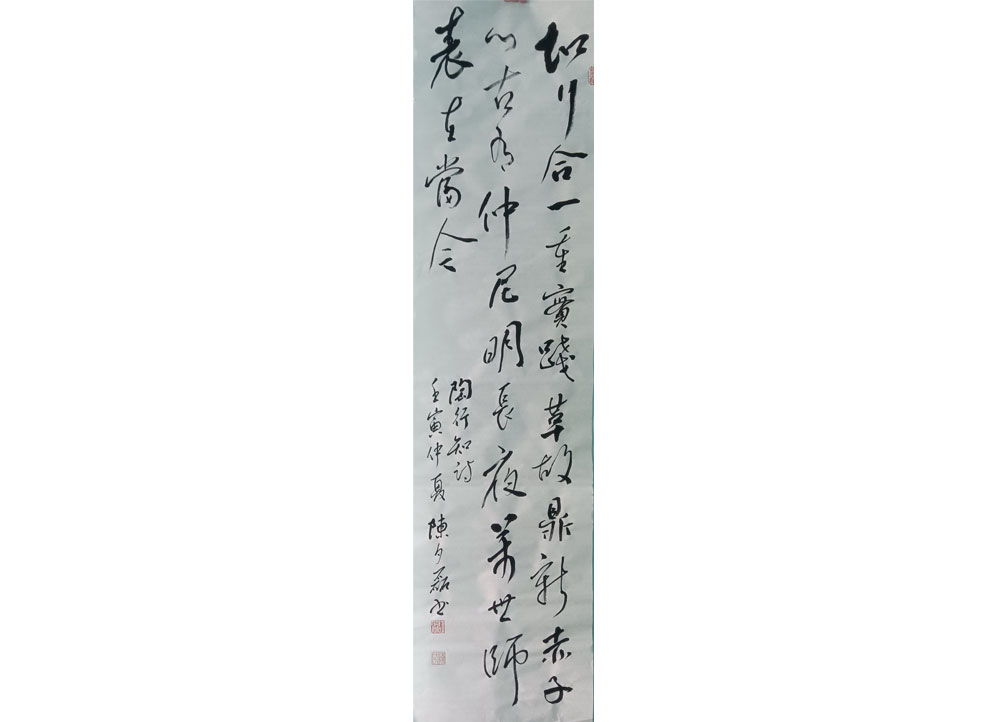 知行合一重實踐革故鼎新赤子
心古有仲尼明長夜萬世師
表在當今
陶行知詩
壬寅仲夏陳夕磊书